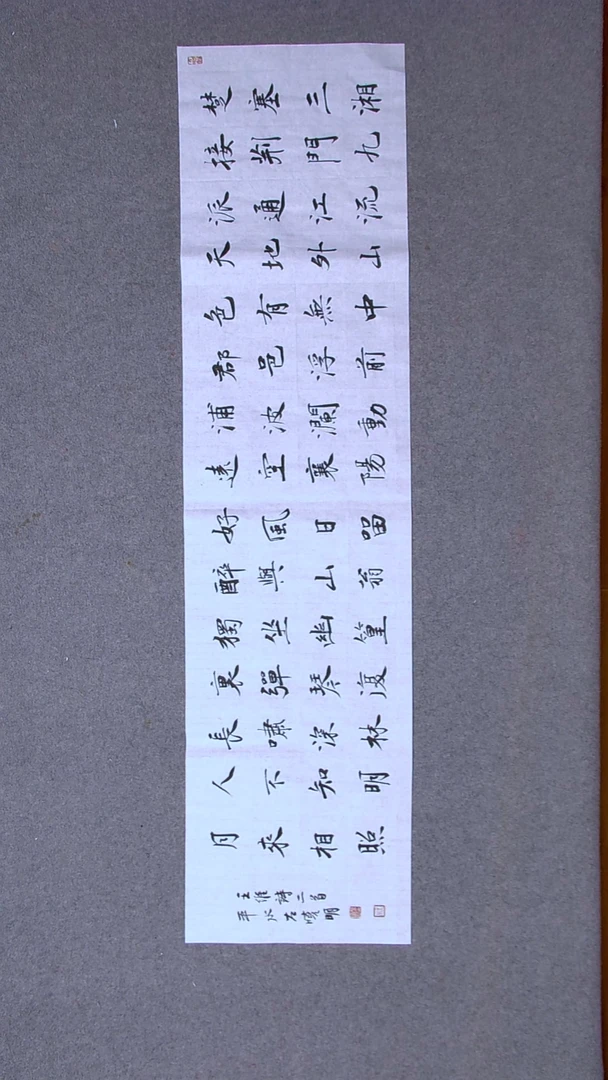 楚塞三湘
接荆門九
派通江流
天地外山
色有無中
郡邑浮前
浦波瀾動
遠空襄陽
好風日留
醉與山翁
獨坐幽篁
裏彈琴復
長嘯深林
人不知明
月來相照
王維詩二首